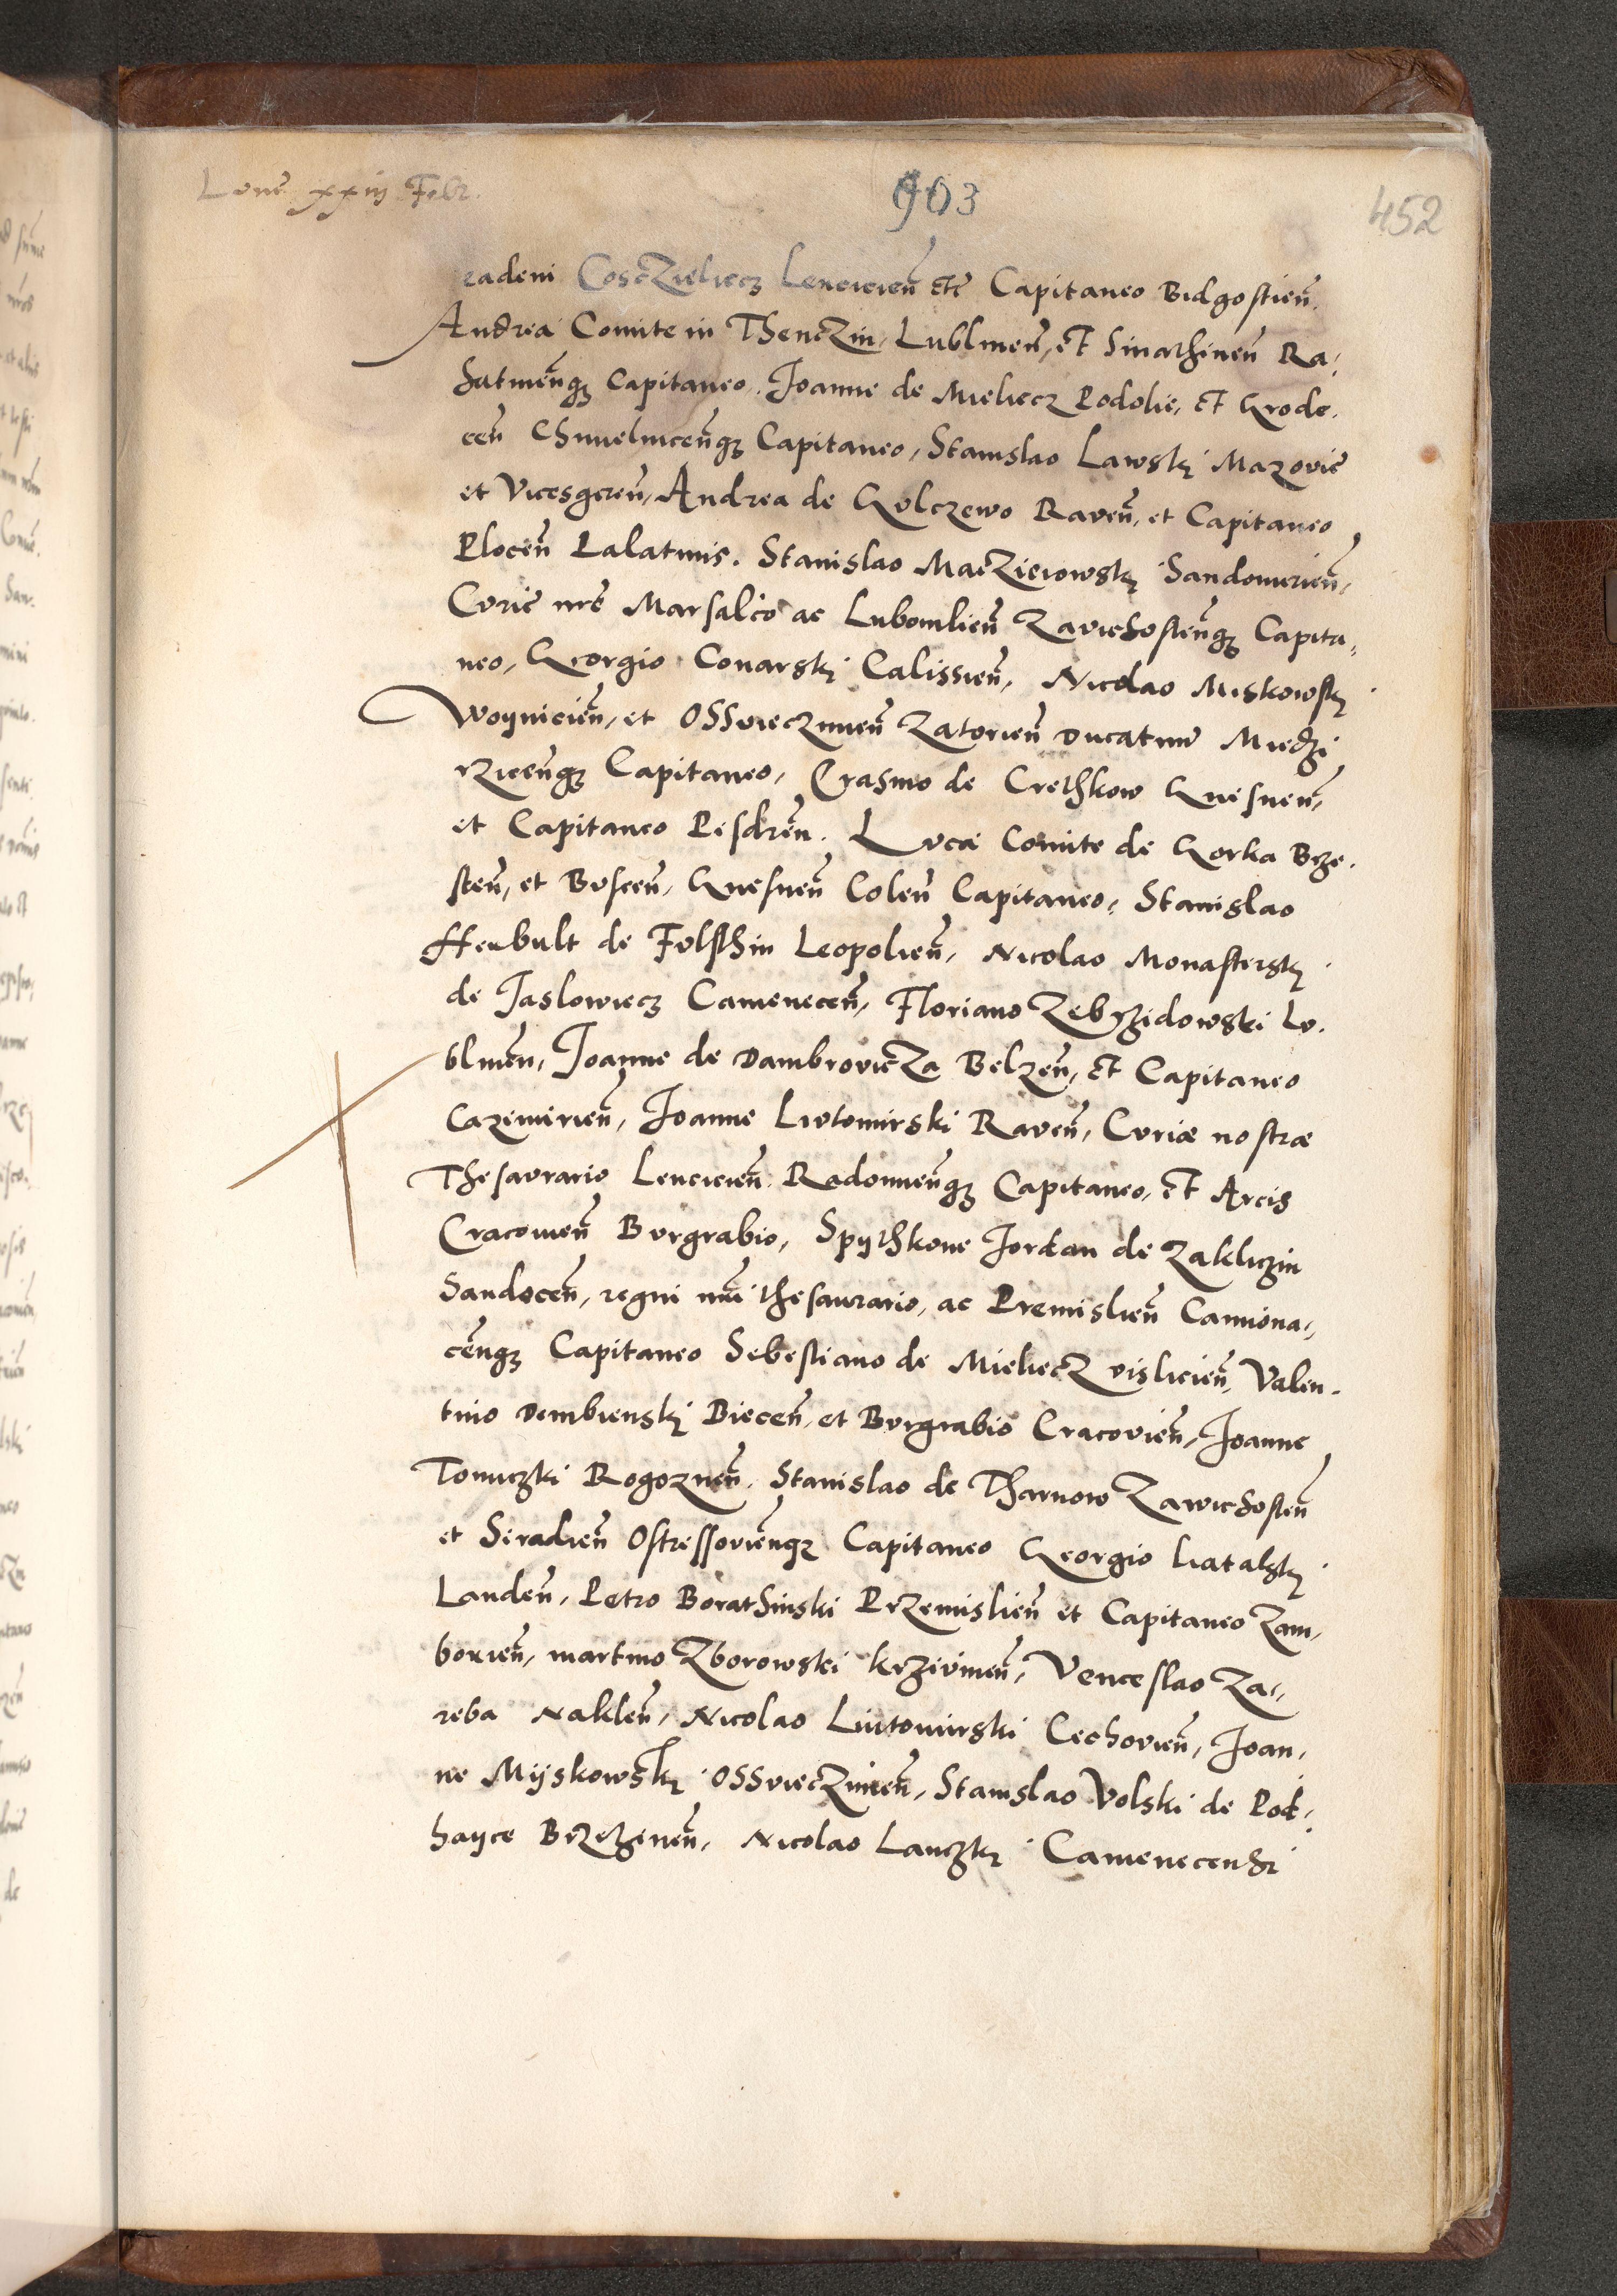 Lune xxiij Febr.
903
452
radem Cosczielecz Lencicień etc Capitaneo Bidgostień.
Andrea Comite in Thenczin, Lublineń, et Sniathineń Ra-
hatineńq₃ Capitaneo. Joanne de Mielecz Podolie, et Grode-
ceń Chmelniceńq₃ Capitaneo, Stanislao Lawski Mazovie
et Vicesgereń, Andrea de Golczewo Raveń, et Capitaneo
Ploceń Palatinis. Stanislao Macziejowski Sandomirień,
Curie nrē Marsalco ac Lubomlień Zavichosteńq₃ Capita-
neo, Georgio Conarski Calissień, Nicolao Miskowski
Woijnicień, et Ossvieczimeń Zatorień Ducatuum Miedzi
rziceńq₃ Capitaneo, Erasmo de Crethkow Gnesneń,
et Capitaneo Pisdreń. Luca Comite de Gorka Brze-
steń, et Busceń, Gnesneń Coleń Capitaneo, Stanislao
Herbult de Fulsthin Leopolień, Nicolao Monasterski
de Jaslowiecz Cameneceń, Floriano Zebrzidowski Lu-
blineń, Joanne de Dambrovicza Belzeń, et Capitaneo
Cazimirień, Joanne Lutomirski Raveń, Curiæ nostræ
Thesaurario Lencicień Radomieńq₃ Capitaneo, et Arcis
Cracovień Burgrabio, Spythkone Jordan de Zakliczin
Sandeceń, regni nrī thesaurario, ac Premislień Camiona-
ceńq₃ Capitaneo Sebestiano de Mielecz vislicień, Valen-
tino Dembienski Bieceń, et Burgrabio Cracovień, Joanne
Tomiczki Rogozneń. Stanislao de Tharnow Zawichosteń
et Siradień Ostressovieńq₃ Capitaneo Georgio Latalski
Landeń, Petro Borathinski Przemislień et Capitaneo Zam-
borień, martino Zborowski krzivineń, Venceslao Za-
reba Nakleń, Nicolao Lutomirski Cechovień, Joan-
ne Mijskowski Ossvieczimeń, Stanislao Volski de Pod-
haijce Brzezineń, Nicolao Lanczki Camenecensi